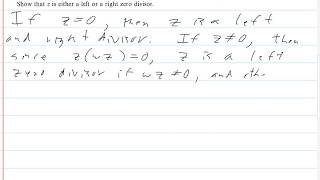 Show that z is either a left or a right zero divisor.
If z=0, then z is a left
and right divisor. If z≠0, then
since z(wz)=0, z is a left
zero divisor if wz≠0, and othe